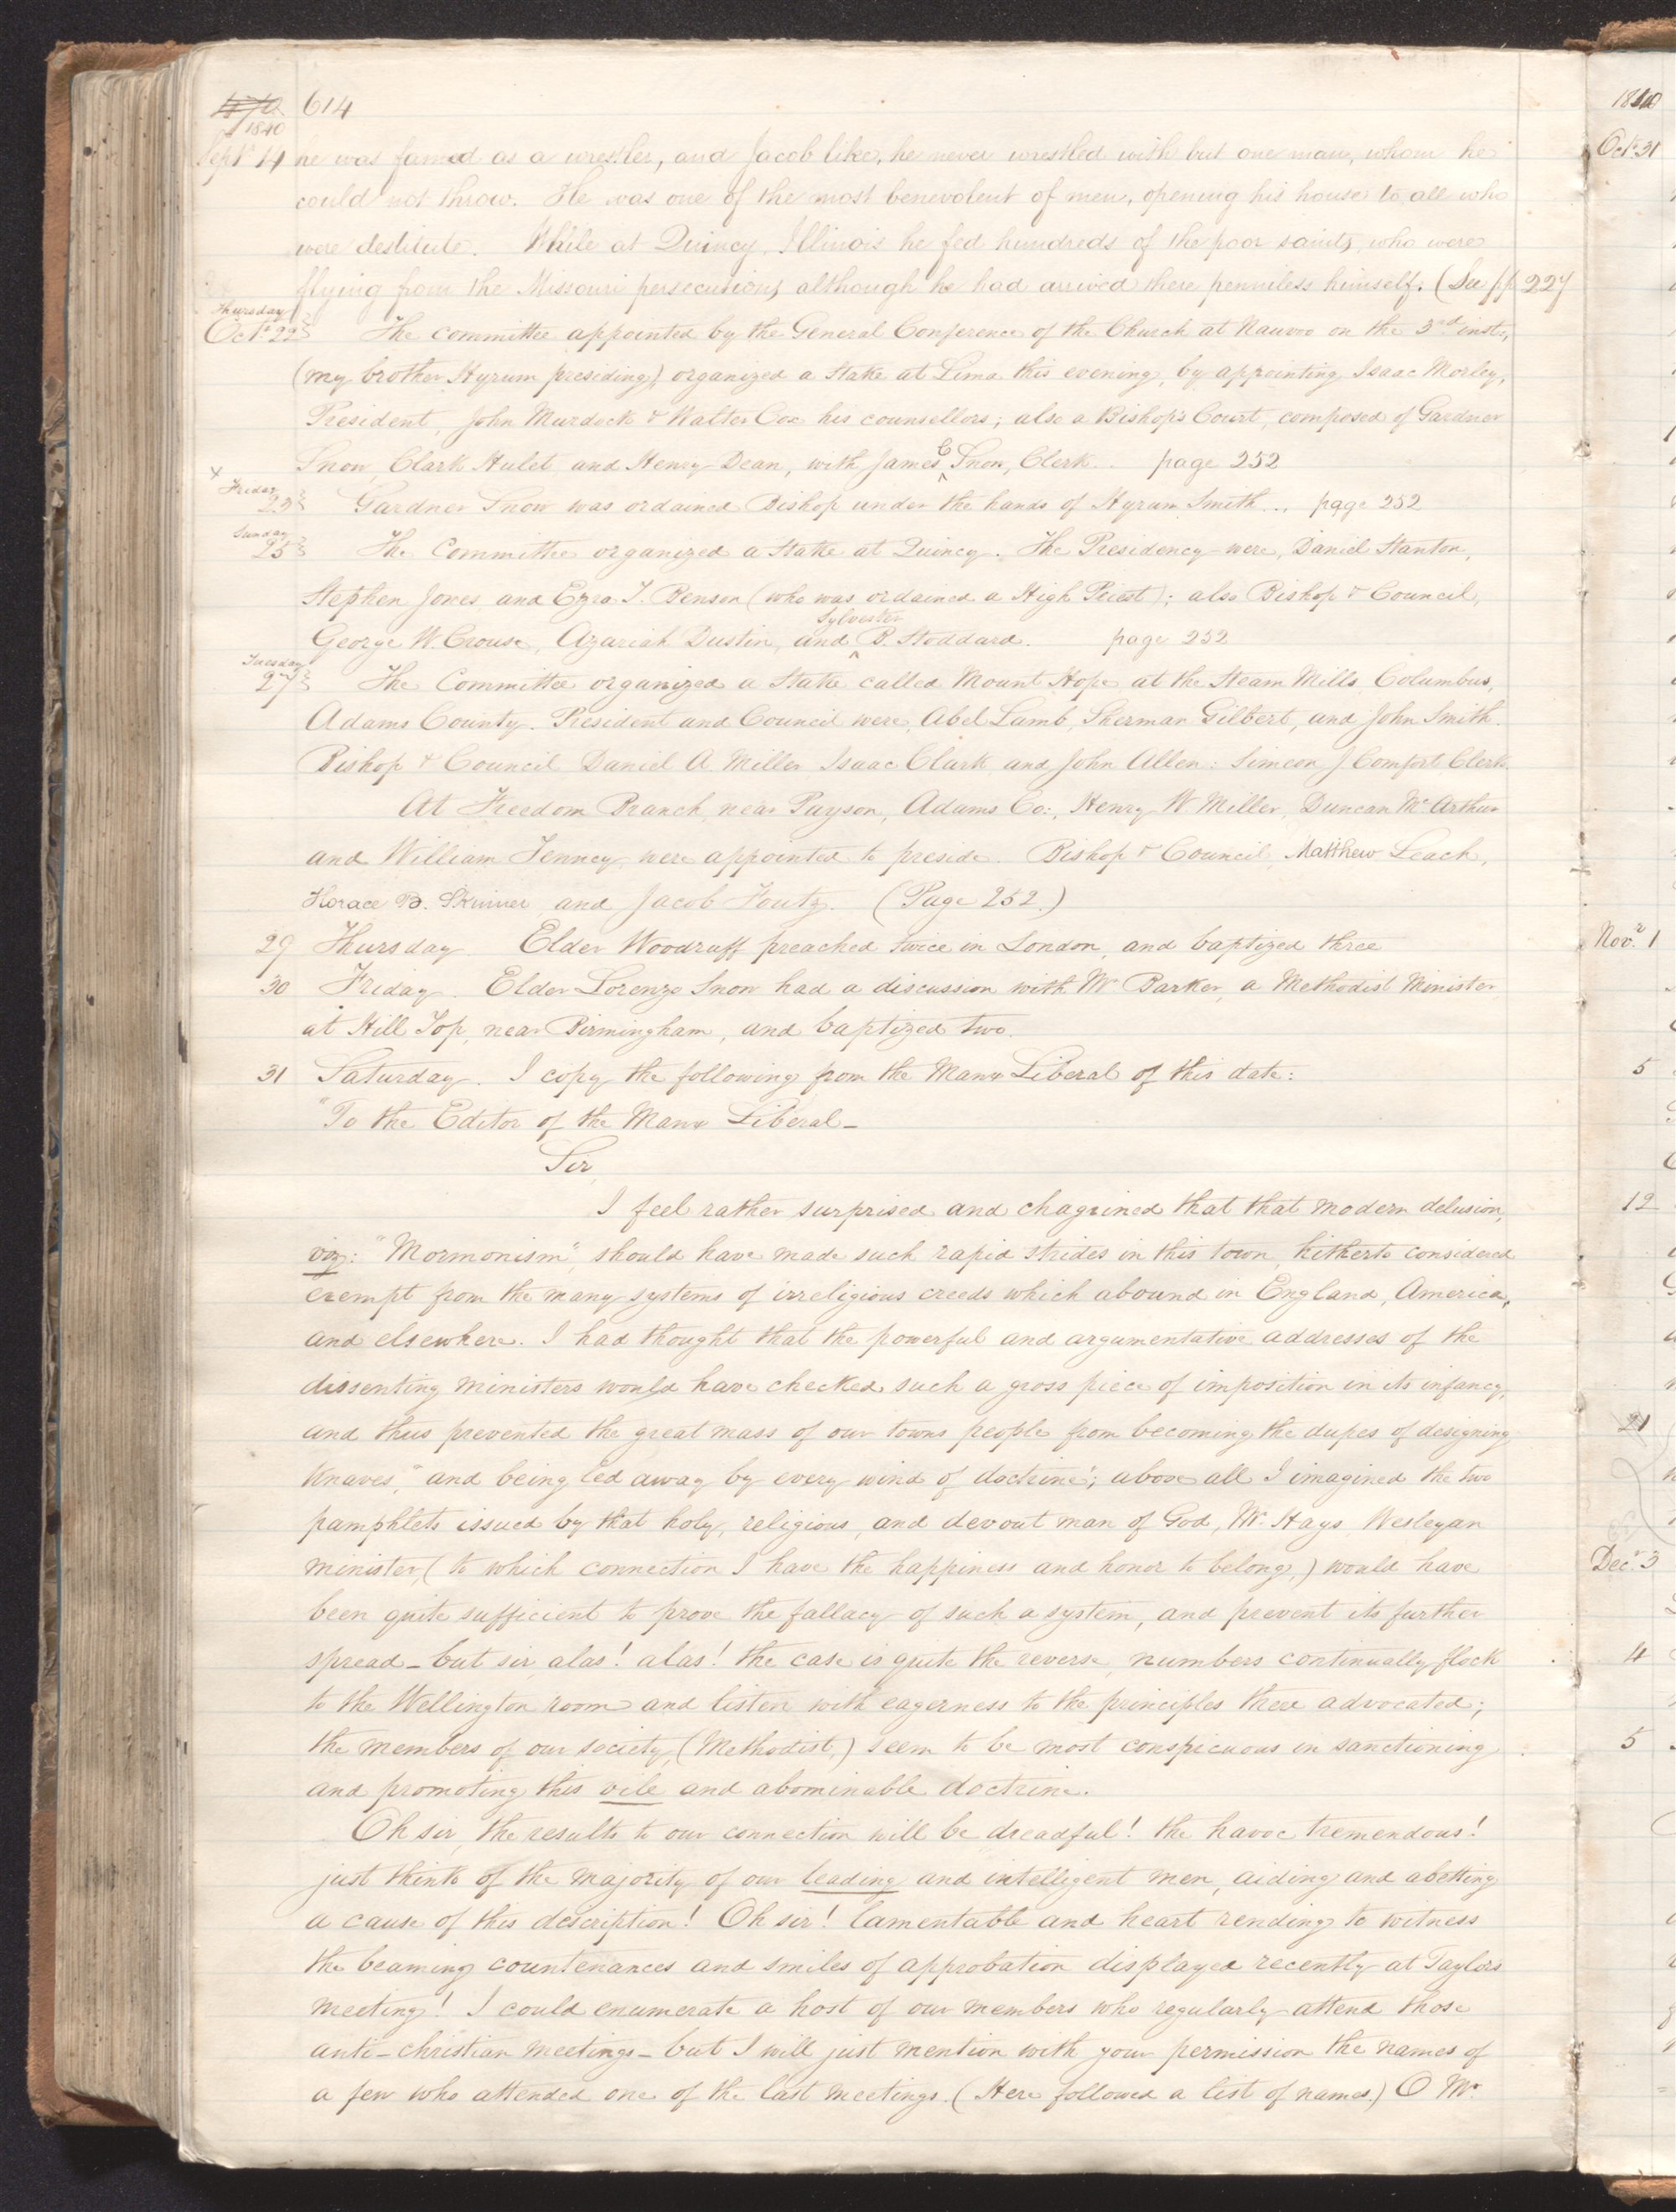 614
1840
Sept. 14 he was famed as a wrestler, and Jacob like, he never wrestled with but one man, whom he
could not throw. He was one of the most benevolent of men, opening his house to all who
were destitute. While at Quincy, Illinois he fed hundreds of the poor saints, who were
flying from the Missouri persecutions, although he had arrived there penniless himself. (See pp 227
Thursday
Octr. 22 The committee appointed by the General Conference of the Church at Nauvoo on the 3rd inst:,
(my brother Hyrum presiding,) organized a Stake at Lima this evening, by appointing Isaac Morley,
President, John Murdock & Walter Cox his counsellors; also a Bishop's Court, composed of Gardner
Snow, Clark Hulet and Henry Dean, with James C Snow, Clerk.. page 252
Friday
23 Gardner Snow was ordained Bishop under the hands of Hyrum Smith... page 252
Sunday
25 The Committee organized a Stake at Quincy. The Presidency were, Daniel Stanton,
Stephen Jones, and Ezra T. Benson (who was ordained a High Priest); also Bishop & Council,
George W. Crouse, Azariah Dustin, and Sylvester B. Stoddard. page 252
Tuesday
27 The Committee organized a Stake called Mount Hope, at the Steam Mills, Columbus,
Adams County. President and Council were, Abel Lamb, Sherman Gilbert, and John Smith.
Bishop & Council Daniel A. Miller, Isaac Clark and John Allen: Simeon J Comfort Clerk
At Freedom Branch, near Payson, Adams Co:, Henry W Miller, Duncan McArthur
and William Tenney, were appointed to preside. Bishop & Council, Matthew Leach,
Horace B. Skinner, and Jacob Foutz. (Page 252.)
29 Thursday Elder Woodruff preached twice in London, and baptized three
30 Friday. Elder Lorenzo Snow had a discussion with Mr Barker, a Methodist Minister
at Hill Top, near Birmingham, and baptized two.
31 Saturday. I copy the following from the Manx Liberal of this date:
"To the Editor of the Manx Liberal_
Sir,
I feel rather surprised and chagrined that that modern delusion,
viz: "Mormonism", should have made such rapid strides in this town, hitherto considered
exempt from the many systems of irreligious creeds which abound in England, America,
and elsewhere. I had thought that the powerful and argumentative addresses of the
dissenting ministers would have checked such a gross piece of imposition in its infancy,
and thus prevented the great mass of our towns people from becoming the dupes of designing
knaves, "and being led away by every wind of doctrine"; above all I imagined the two
pamphlets issued by that holy, religious, and devout man of God, Mr. Hays, Wesleyan
minister, (to which connection I have the happiness and honor to belong,) would have
been quite sufficient to prove the fallacy of such a system, and prevent its further
spread_but sir, alas! alas! the case is quite the reverse, numbers continually flock
to the Wellington room and listen with eagerness to the principles there advocated;
the members of our society, (Methodist,) seem to be most conspicuous in sanctioning
and promoting this vile and abominable doctrine.
Oh sir, the results to our connection will be dreadful! the havoc tremendous!
just think of the majority of our leading and intelligent men, aiding and abetting
a cause of this description! Oh sir! lamentable and heart rending to witness
the beaming countenances and smiles of approbation displayed recently at Taylor's
meeting! I could enumerate a host of our members who regularly attend those
anti-christian meetings_but I will just mention with your permission the names of
a few who attended one of the last meetings. (Here followed a list of names.) O Mr.
1840
Octr. 31
Novr. 1
5
12
21
Decr. 3
4
5